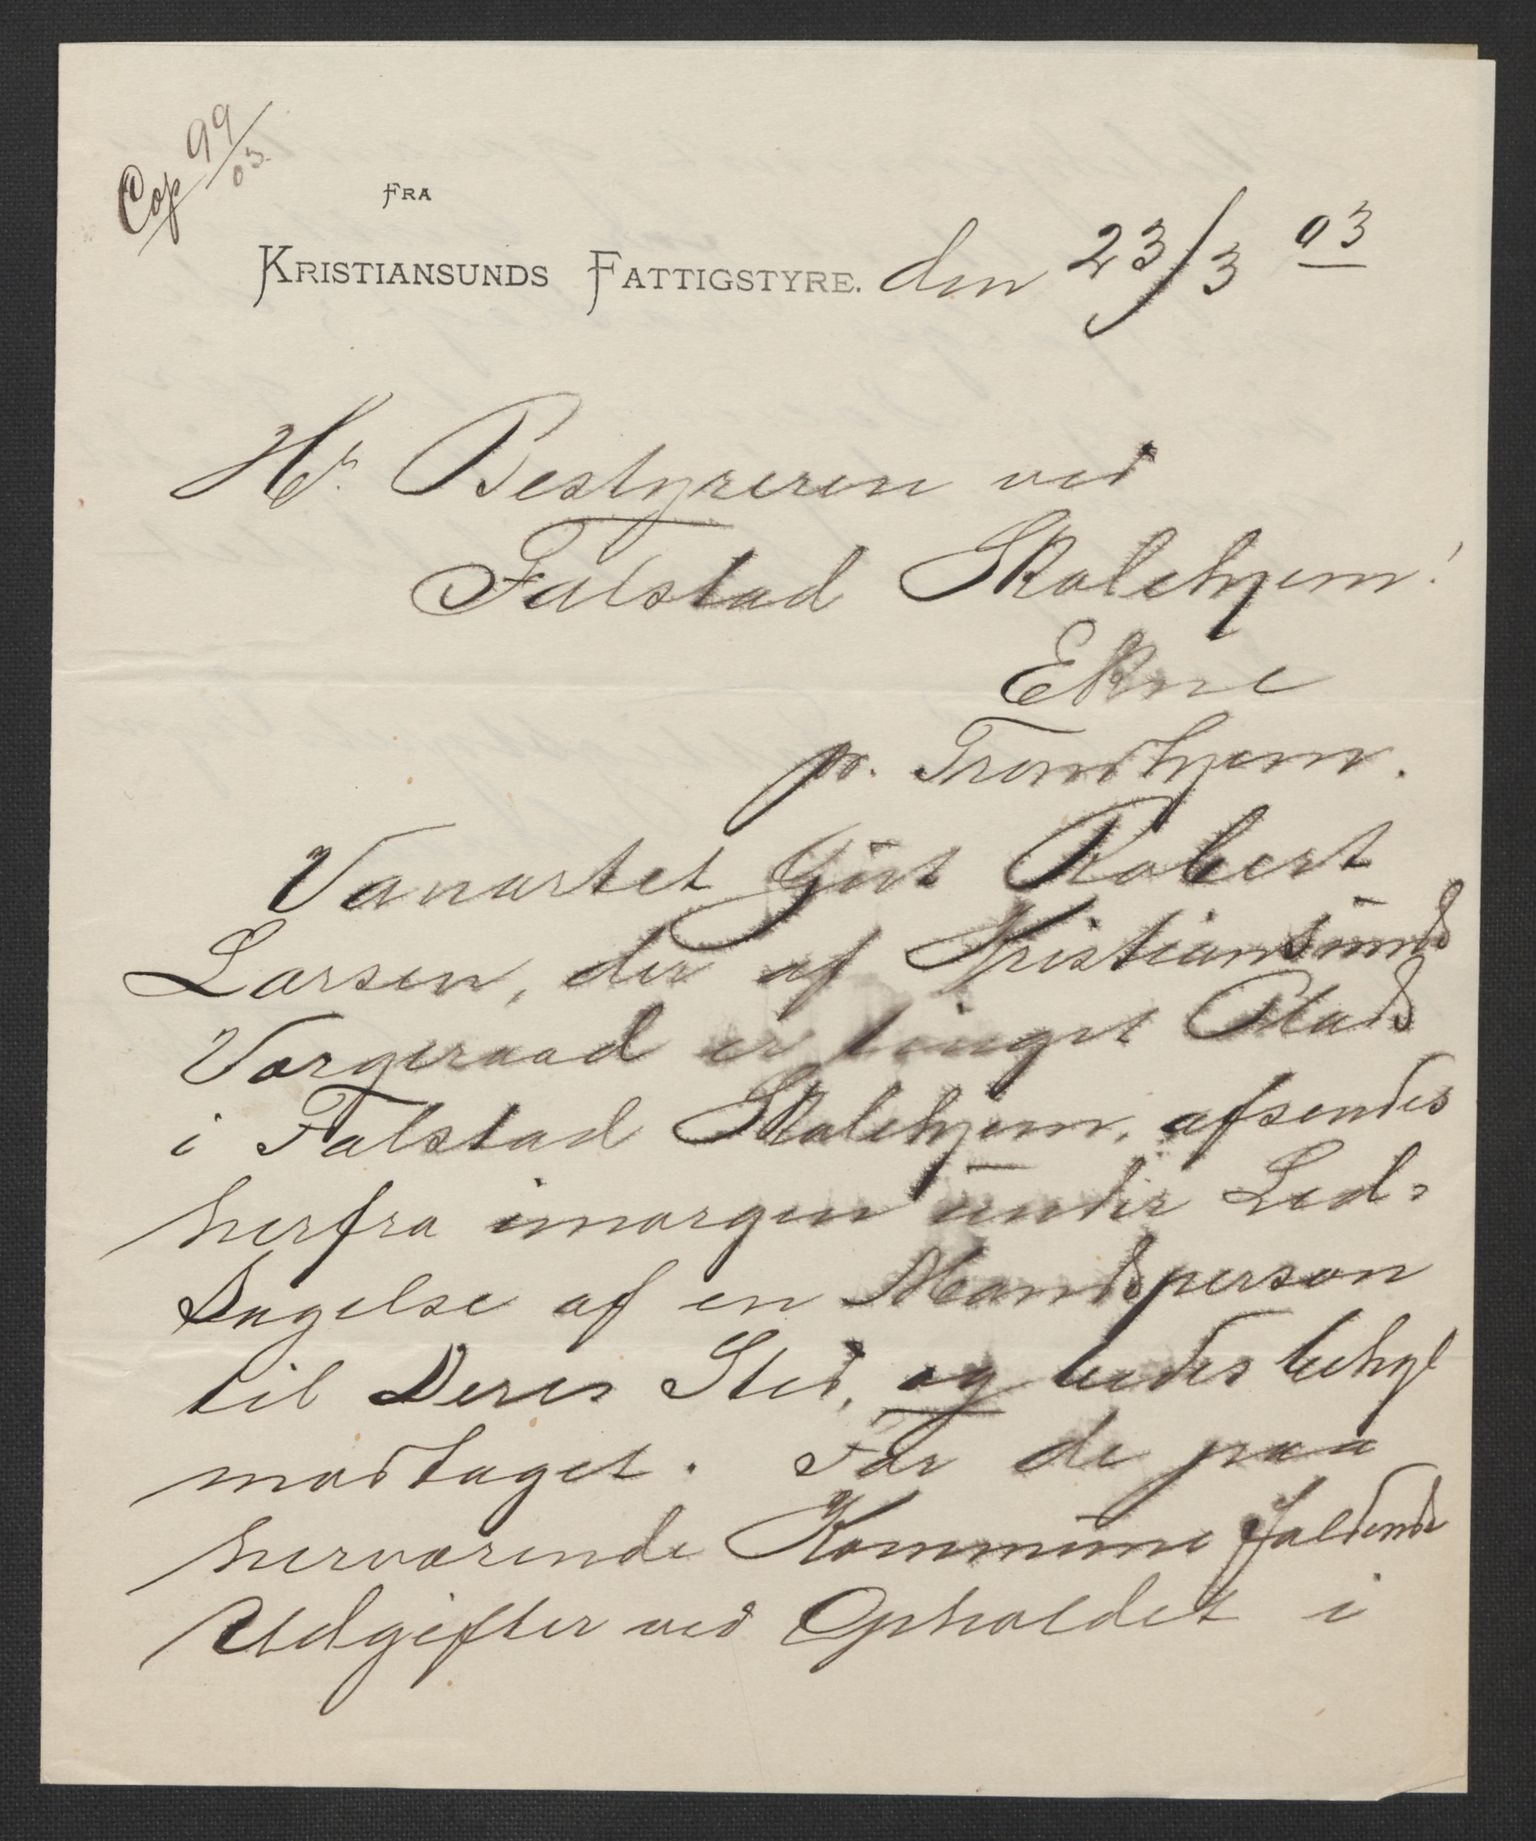 Cop 99/03
FRA
KRISTIANSUNDS FATTIGSTYRE. den 23/3 03
Hr. Bestyreren ved
Falstad Skolehjem!
Ekne
pr. Trondhjem.
Vanartet Gut Robert
Larsen, der af Kristiansunds
Værgeraad er tinget Plads
i Falstad Skolehjem, afsendes
herfra imorgen under Led-
sagelse af en Mandsperson
til Deres Sted, og bedes behgl
modtaget. For de paa
herværende Kommune faldende
Udgifter ved Opholdet i